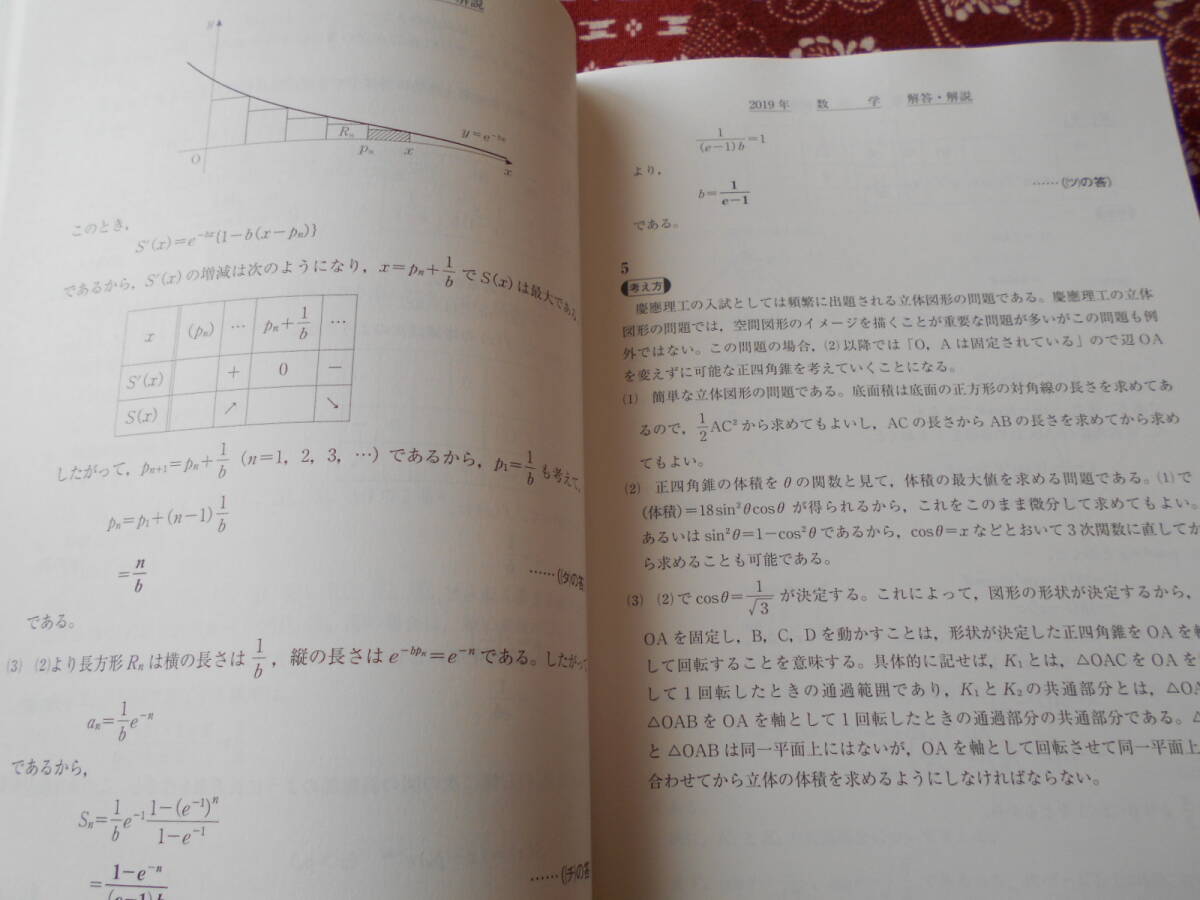 解説
y
y=e^{-bx}
R_n
O
p_n
x
x
このとき，
S′(x)=e^{-bx}{1−b(x−p_n)}
であるから，S′(x) の増減は次のようになり，x=p_n+1/b で S(x) は最大である
x (p_n) … p_n+1/b …
S′(x) + 0 −
S(x) ↗ ↘
したがって，p_{n+1}=p_n+1/b (n=1，2，3，…) であるから，p_1=1/b も考えて，
p_n=p_1+(n−1)1/b
=n/b
……(タ)の答
である。
(3) (2)より長方形 R_n は横の長さは 1/b，縦の長さは e^{-bp_n}=e^{-n} である。したがって
a_n=1/b e^{-n}
であるから，
S_n=1/b e^{-1} (1−(e^{-1})^n)/(1−e^{-1})
=(1−e^{-n})/((e−1)b)
……(チ)の答
2019年 数 学 解答・解説
1/((e−1)b)=1
より，
b=1/(e−1)
……(ツ)の答)
である。
5
考え方
慶應理工の入試としては頻繁に出題される立体図形の問題である。慶應理工の立体
図形の問題では，空間図形のイメージを描くことが重要な問題が多いがこの問題も例
外ではない。この問題の場合，(2)以降では「O，A は固定されている」ので辺 OA
を変えずに可能な正四角錐を考えていくことになる。
(1) 簡単な立体図形の問題である。底面積は底面の正方形の対角線の長さを求めてあ
るので，1/2 AC² から求めてもよいし，AC の長さから AB の長さを求めてから求め
てもよい。
(2) 正四角錐の体積を θ の関数と見て，体積の最大値を求める問題である。(1)で
(体積)=18sin²θcosθ が得られるから，これをこのまま微分して求めてもよい。
あるいは sin²θ=1−cos²θ であるから，cosθ=x などとおいて3次関数に直してか
ら求めることも可能である。
(3) (2)で cosθ=1/√3 が決定する。これによって，図形の形状が決定するから，
OA を固定し，B，C，D を動かすことは，形状が決定した正四角錐を OA を軸
して回転することを意味する。具体的に記せば，K₁ とは，△OAC を OA を
して1回転したときの通過範囲であり，K₁ と K₂ の共通部分とは，△OA
△OAB を OA を軸として1回転したときの通過部分の共通部分である。△
と △OAB は同一平面上にはないが，OA を軸として回転させて同一平面上
合わせてから立体の体積を求めるようにしなければならない。